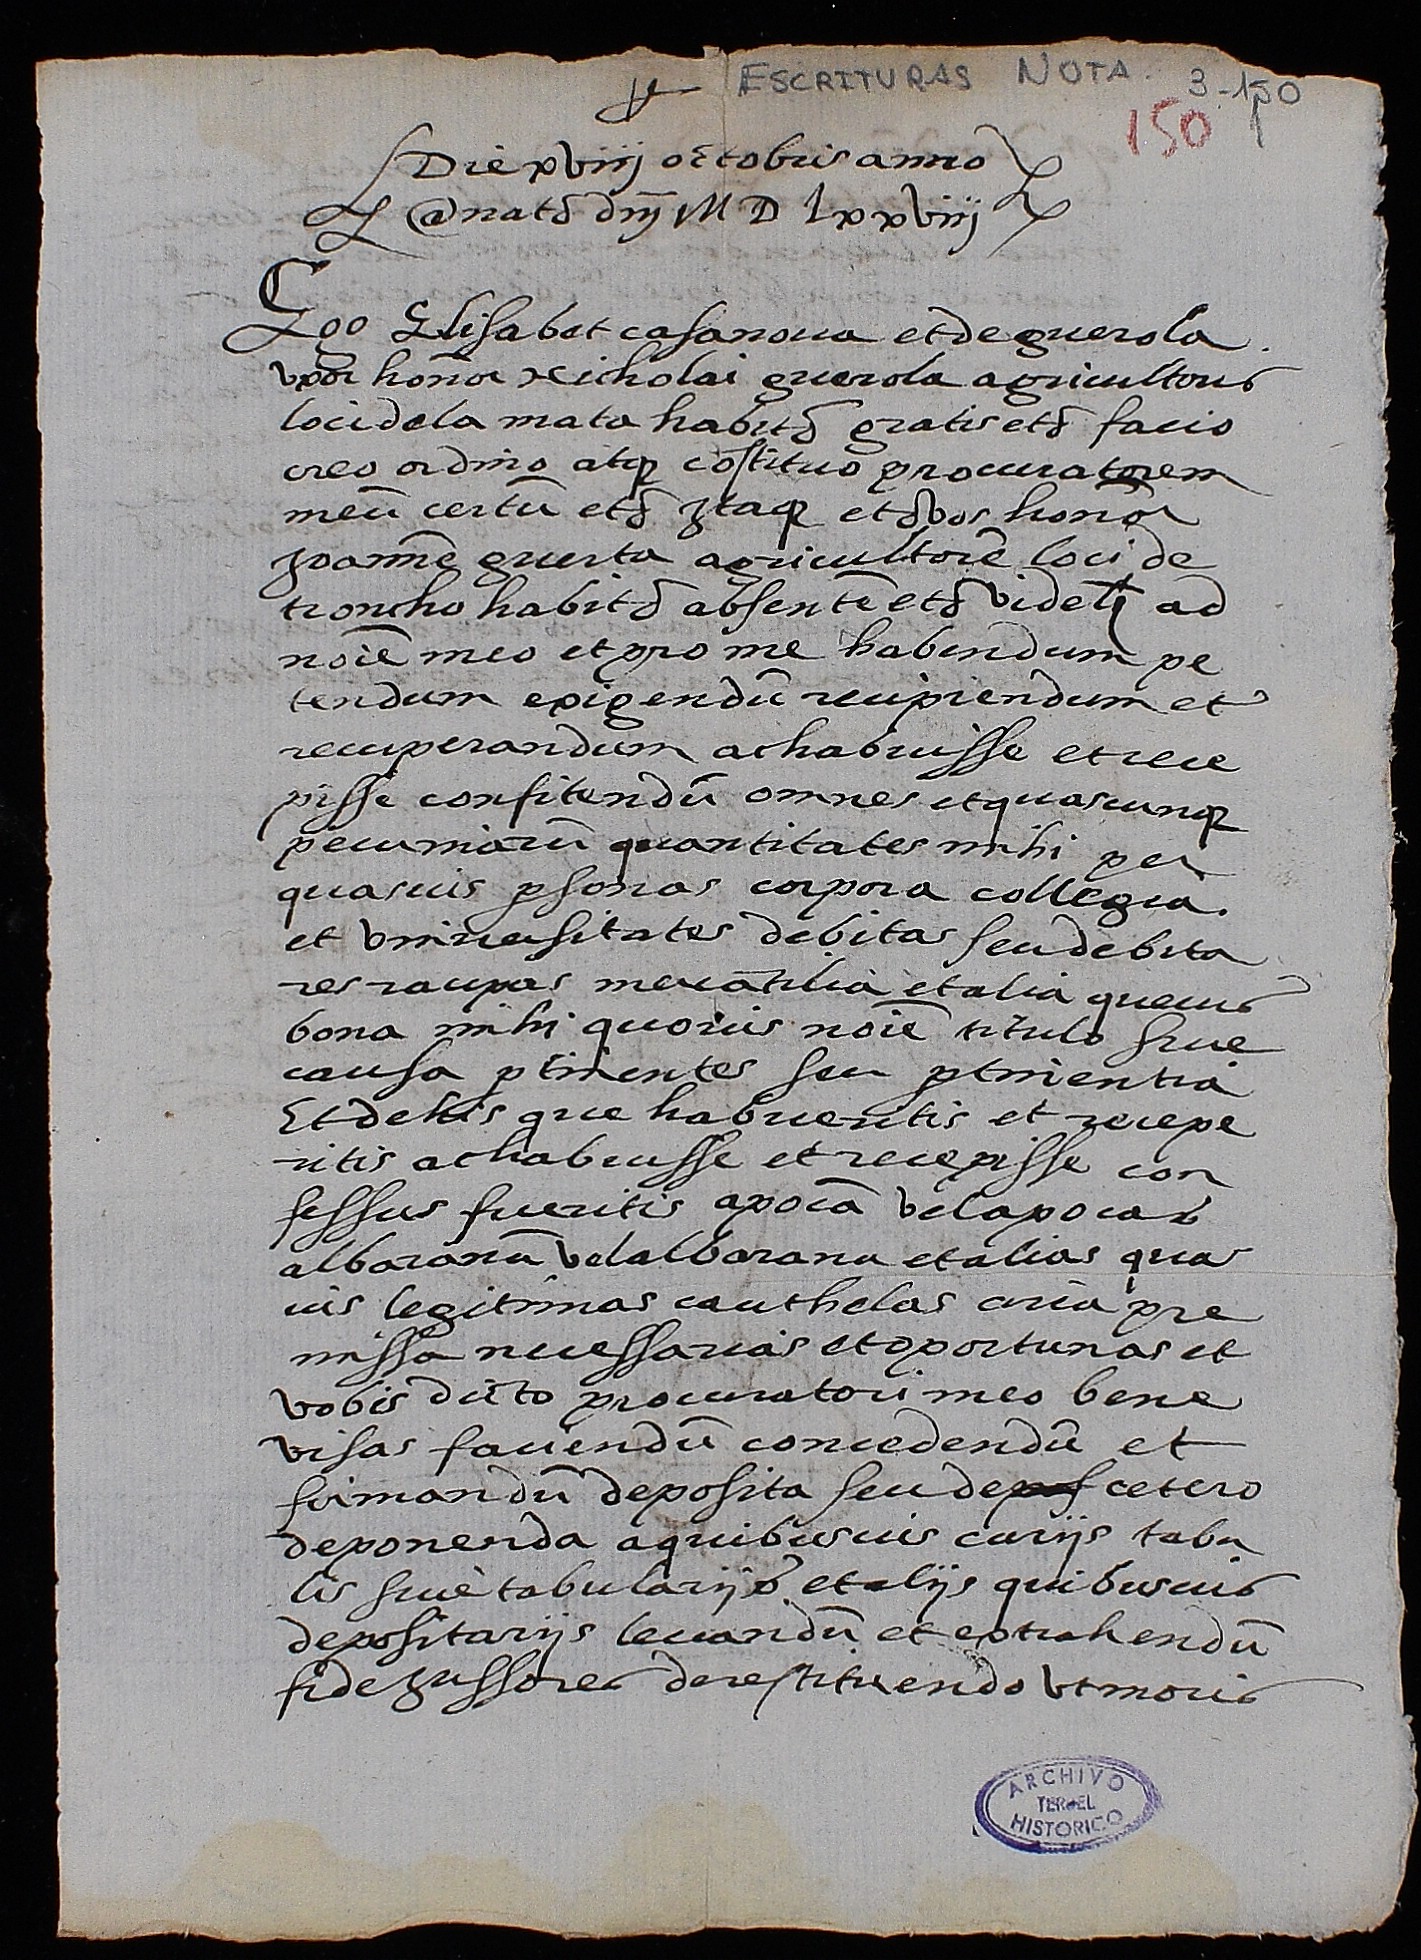 ESCRITURAS NOTA. 3-150
150
Die xviiij octobris anno
a natē dnj M D lxxviiij
Ego Elisabet casanoua et de guerola
vxor honor Nicholai guerola agricultoris
loci de la mata habitē gratis etē facio
creo ordino atq costituo procuratorem
meū certū etē Itaq etē vos honor
Joannē guerta agricultorē loci de
troncho habitē absentē etē videlt ad
noīe meo et pro me habendum pe
tendum exigendū recipiendum et
recuperandum ac habuisse et rece
pisse confitendū omnes et quascunq
pecuniarū quantitates mihi per
quasuis psonas corpora collegia
et vniuersitates debitas seu debita
res raupas mercātilia et alia queuis
bona mihi quouis noīe titulo siue
causa ptinentes seu ptinentia
Et de his que habueritis et recepe
ritis ac habuisse et recepisse con
fessus fueritis apocā vel apocas
albaranū vel albarana et alias quas
uis legitimas cauthelas circa pre
missa necessarias et oportunas et
vobis dicto procuratori meo bene
visas faciendū concedendū et
firmandū deposita seu de cetero
deponenda a quibusuis curijs tabu
lis siue tabularijs et alijs quibusuis
depositarijs leuandū et extrahendū
fidejussores de restituendo vt moris
ARCHIVO
TERUEL
HISTORICO